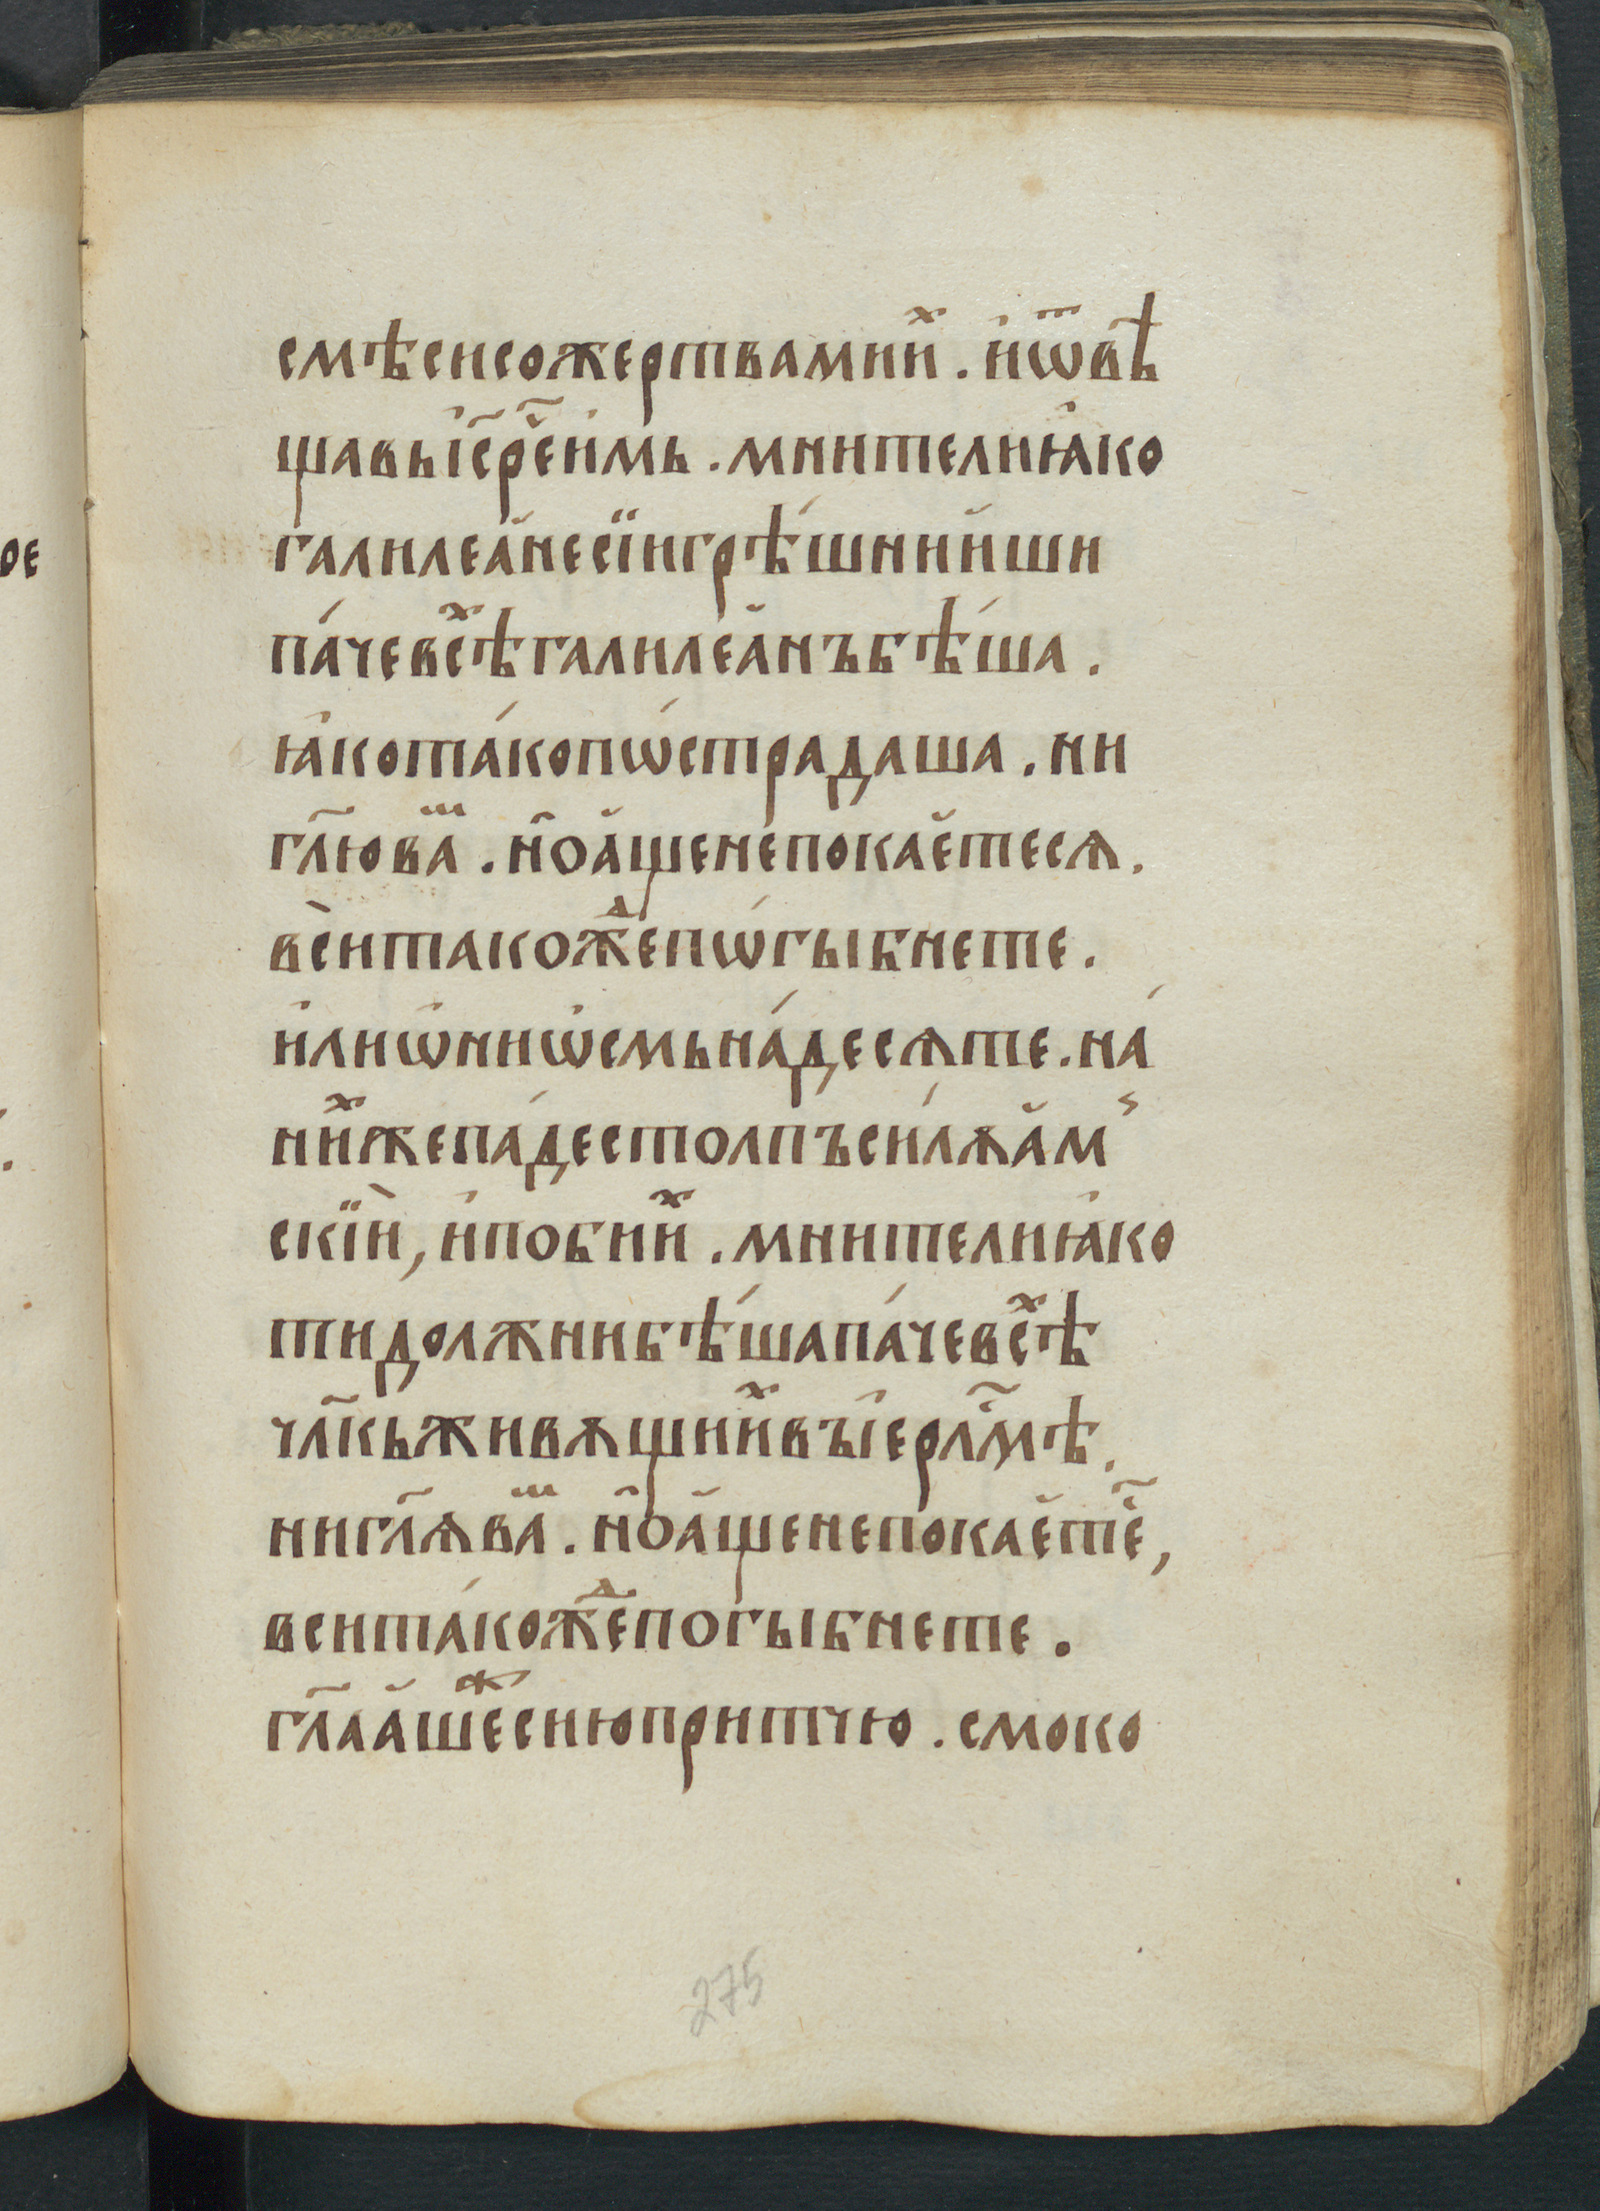 смѣсисожертвамии҆ⷯ. и҆ѿвѣ
щавыі҆с҃рчеи҆мь. мнителиꙗ҆ко
галилеа҆несїигрѣ́шнии҆ши
па́чевсѣⷯгалилеа҆нъбѣ́ша.
ꙗ҆кота́копѡ́страдаша. ни
гл҃ювⷨа. но҆а҆щенепокае҆теся.
всѝтакожⷣепѡ́гыбнете.
и҆лиѡ҆ниѡ҆смьна́десѧте. на́
ни҆ⷯжепа́дестолпъсил̾ѡа҆м
скїи҆, и҆поби҆ⷯ. мнителиꙗ҆ко
тидолжнибѣ́шапа́чевсѣⷯ
чл҃кьживѧщи҆ⷯвъі҆ерл҃мѣ.
нигл҃ѧвⷨа. но҆а҆щенепокае҆те҃,
вситакожⷣепогыбнете.
гл҃аа҆шⷤесиюпритчю. смоко
275
ое